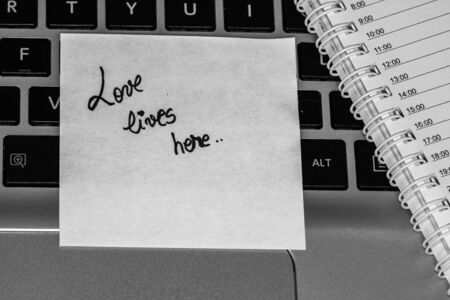 R T Y U I
F
Love
lives
here..
ALT
8:00
9:00
10:00
11:00
12:00
13:00
14:00
15:00
16:00
17:00
18:00
19:00